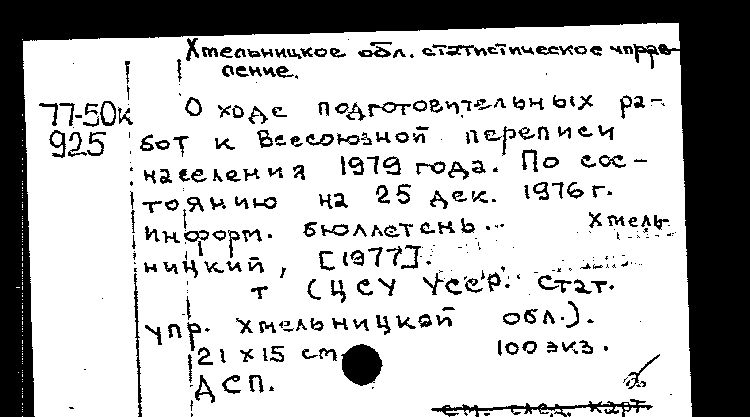 Хмельницкое обл. статистическое управ-
ление.
77-50к
925
О ходе подготовительных ра-
бот к Всесоюзной переписи
населения 1979 года. По сос-
тоянию на 25 дек. 1976 г.
Информ. бюллетень... Хмель-
ницкий, [1977].
т (ЦСУ УССР. Стат.
упр. Хмельницкой обл.).
21 х 15 см 100 экз.
ДСП.
см. след. карт.